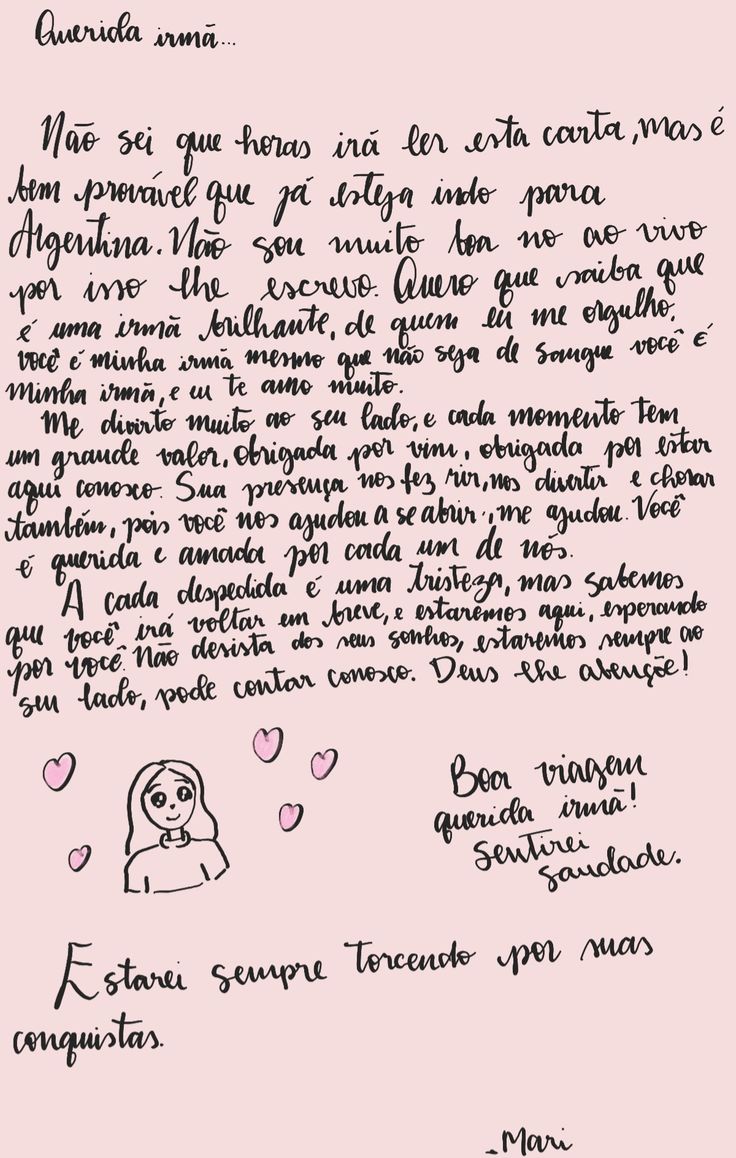 Querida irmã...
Não sei que horas irá ler esta carta, mas é
bem provável que já esteja indo para
Argentina. Não sou muito boa no ao vivo
por isso lhe escrevo. Quero que saiba que
é uma irmã brilhante, de quem eu me orgulho.
você é minha irmã mesmo que não seja de sangue você é
minha irmã, e eu te amo muito.
Me divirto muito ao seu lado, e cada momento tem
um grande valor, obrigada por vim, obrigada por estar
aqui conosco. Sua presença nos fez rir, nos divertir e chorar
também, pois você nos ajudou a se abrir, me ajudou. Você
é querida e amada por cada um de nós.
A cada despedida é uma tristeza, mas sabemos
que você irá voltar em breve, e estaremos aqui, esperando
por você. Não desista dos seus sonhos, estaremos sempre ao
seu lado, pode contar conosco. Deus lhe abençõe!
Boa viagem
querida irmã!
Sentirei
saudade.
Estarei sempre torcendo por suas
conquistas.
-Mari